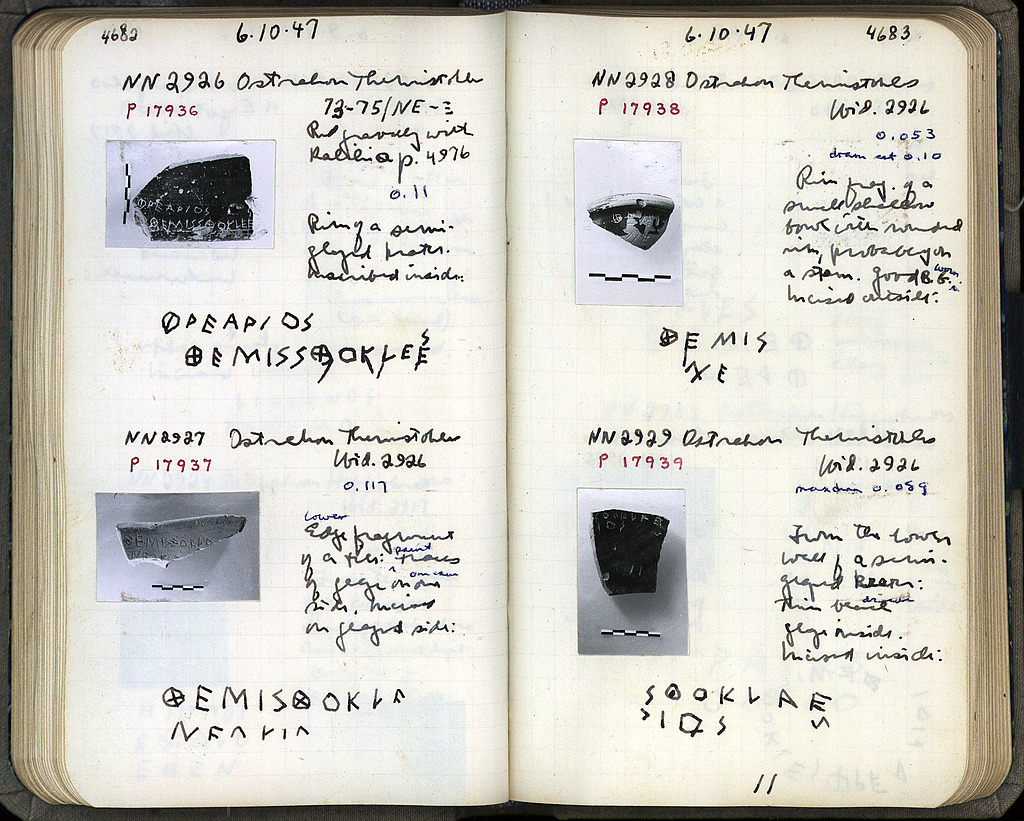 4682
6·10·47
NN2926 Ostrakon Themistokles
P 17936
73-75/NE-
Red gravelly with
p. 4976
0.11
Rim of a semi-
glazed krater.
Inscribed inside:
ΦΡΕΑΡΙΟΣ
ΘΕΜΙΣΣΘΟΚLΕΕΣ
NN2927 Ostrakon Themistokles
P 17937
Wid. 2926
0.117
lower
Edge fragment
of a tile: traces
paint
of glaze on one
side. Incised
on glazed side:
ΘΕΜΙSΘΟΚL
6·10·47
4683
NN2928 Ostrakon Themistokles
P 17938
Wid. 2926
0.053
diam est 0.10
Rim frag. of a
small shallow
bowl with rounded
rim, probably on
a stem. Good B.G.
Incised outside:
ΘΕΜΙS
ΝΕ
NN2929 Ostrakon Themistokles
P 17939
Wid. 2926
max dim 0.089
From the lower
wall of a semi-
glazed krater:
thin black
glaze inside.
Incised inside:
SΘΟΚLΑΕ
ΙΟS
11